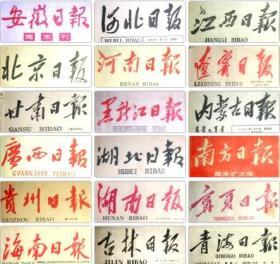 安徽日報
周末刊
河北日报
HEBEI RIBAO
江西日报
JIANGXI RIBAO
北京日报
河南日報
HENAN RIBAO
辽宁日报
LIAONING RIBAO
甘肃日报
GANSU RIBAO
黑龙江日報
内蒙古日报
廣西日报
GVANGJSIH YIZBAO
湖北日報
HUBEI RIBAO
南方日報
周末扩大版
贵州日报
GUIZHOU RIBAO
湖南日報
HUNAN RIBAO
宁夏日报
NINGXIA RIBAO
海南日報
吉林日报
JILIN RIBAO
青海日报
QINGHAI RIBAO